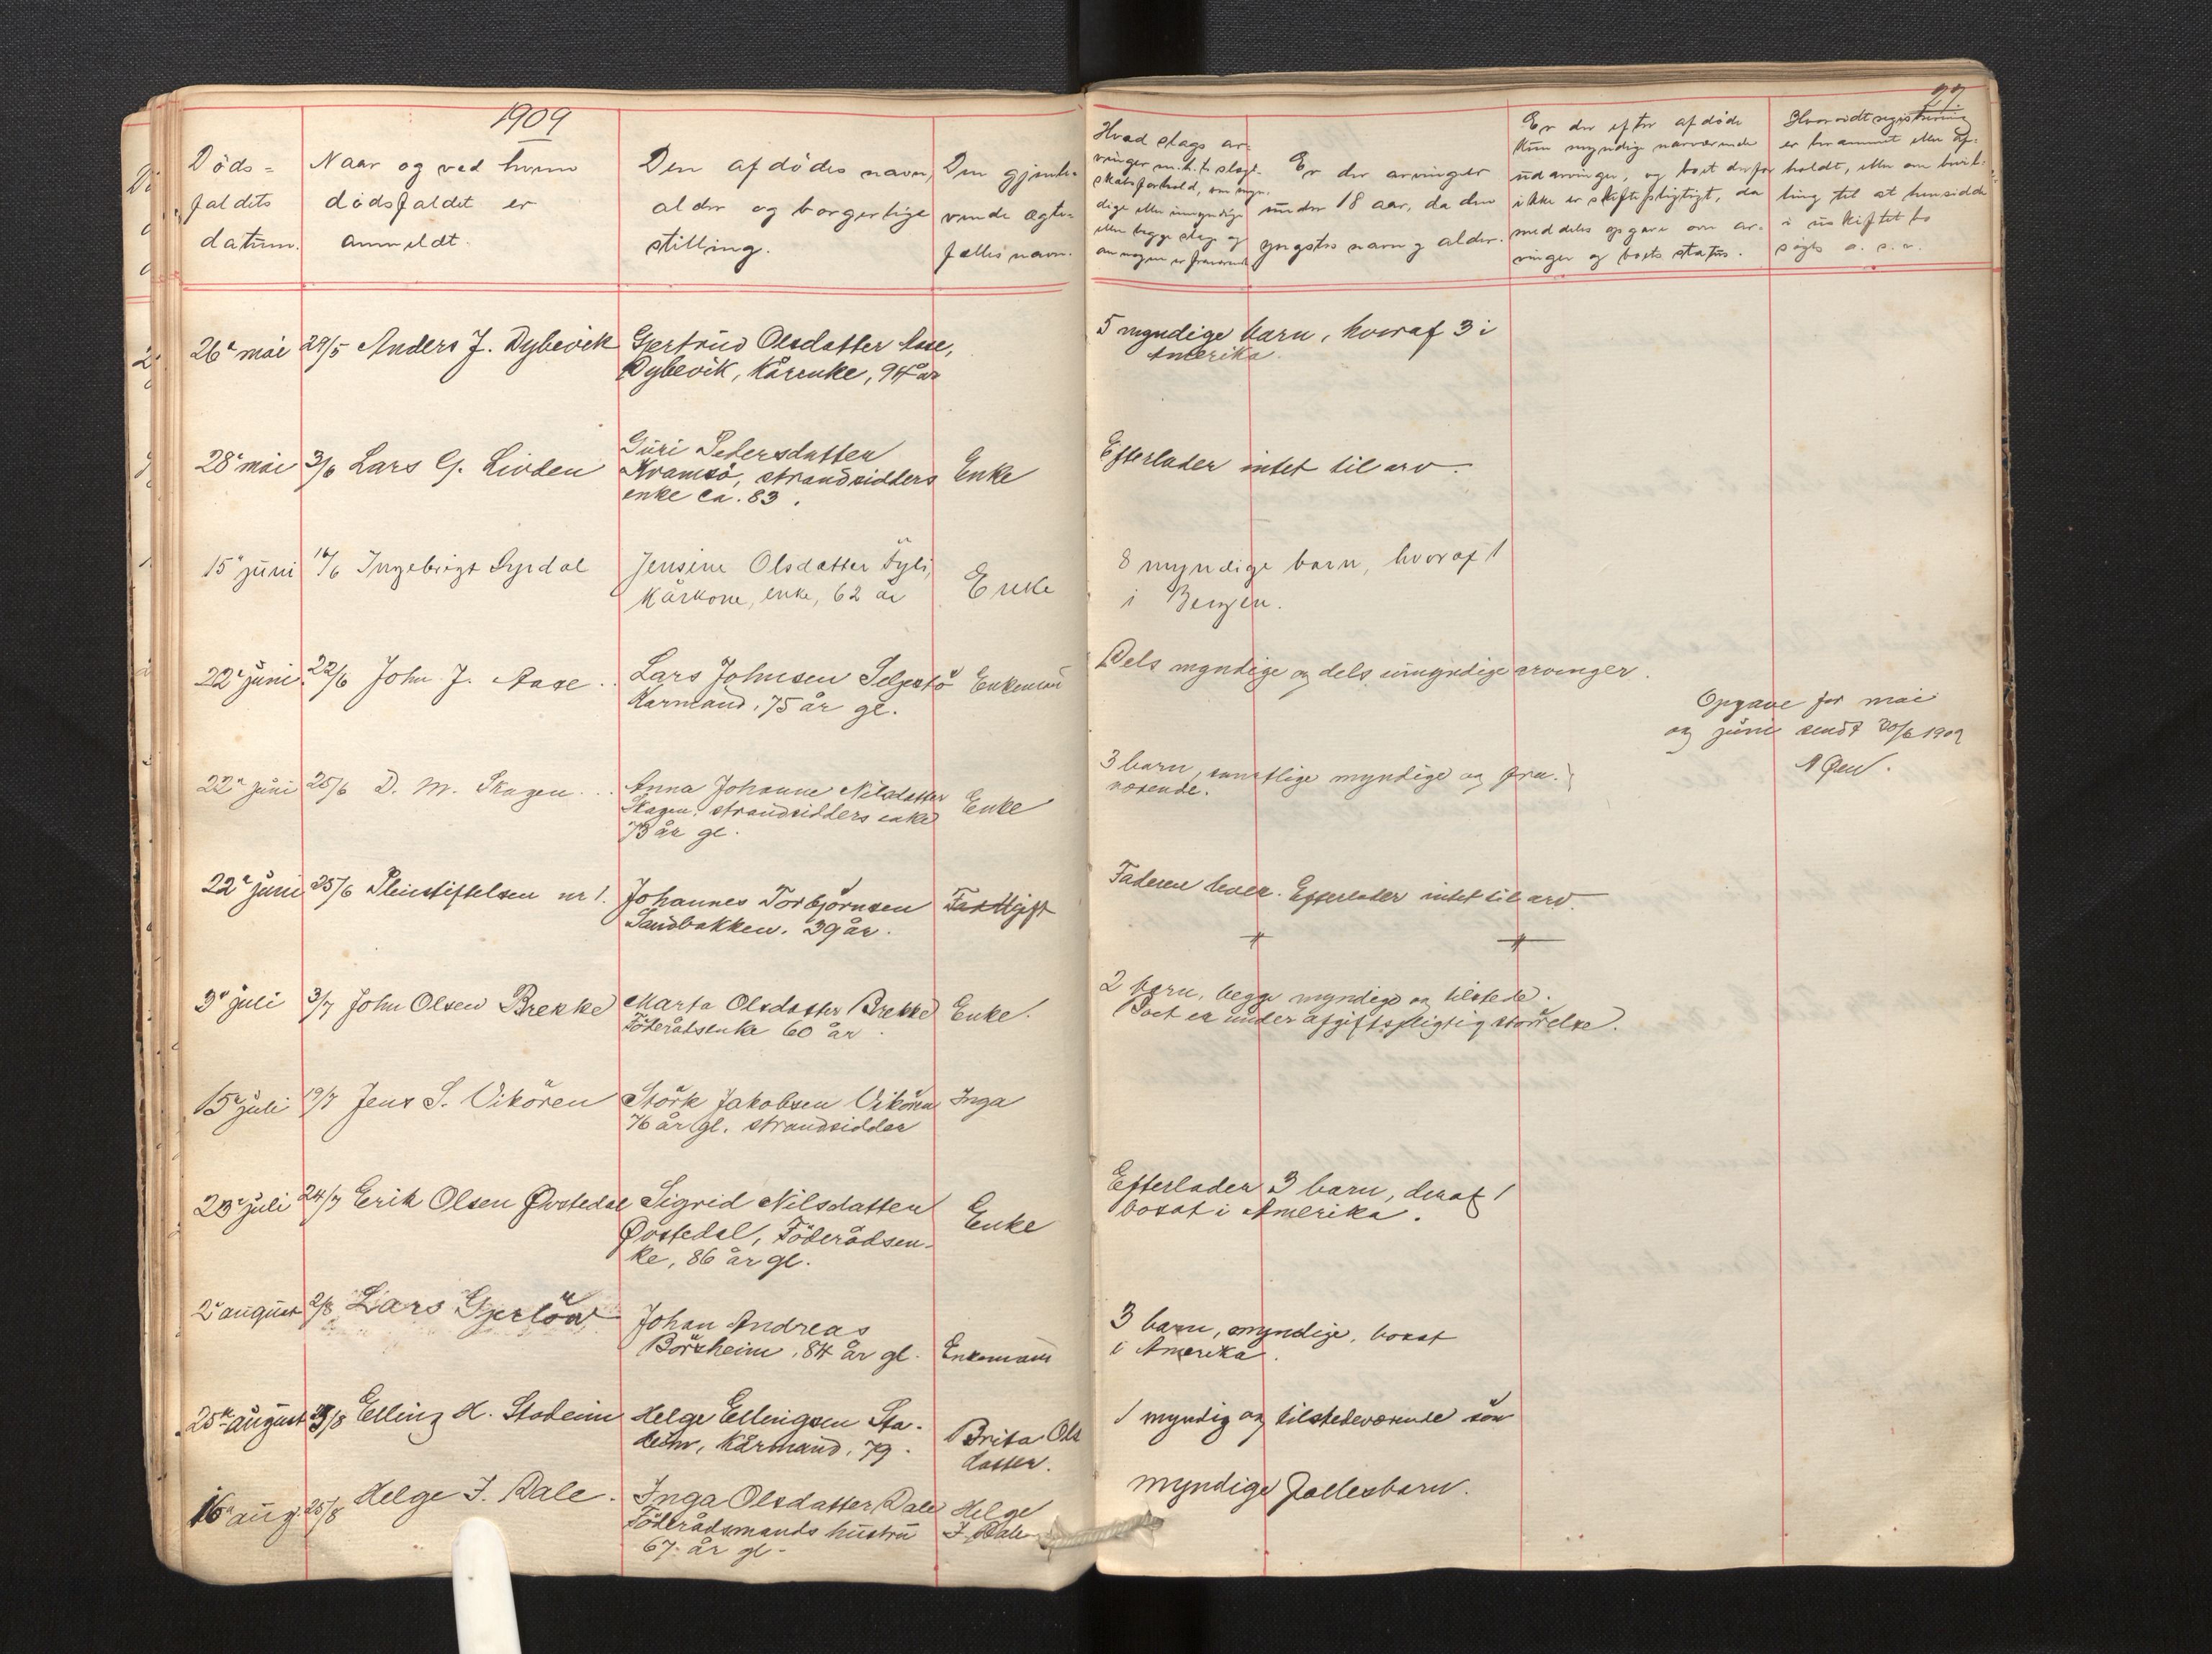 1909
27.
Døds-
faldets
datum.
Naar og ved hvem
dødsfaldet er
anmeldt.
Den afdødes navn,
alder og borgerlige
stilling.
Den gjenle-
vende ægte-
fælles navn.
Hvad slags ar-
vinger m. h. t. slægt-
skabsforhold, om myn-
dige eller umyndige
eller begge slags og
om nogen er fraværende
Er der arvinger
under 18 aar, da den
yngstes navn og alder.
Er der efter afdøde
kun myndige nærværende
udarvinger, og boet derfor
ikke er skiftepligtigt, da
meddeles opgave om ar-
vinger og boets status.
Hvorvidt registrering
er berammet eller af-
holdt, eller om bevil-
ling til at hensidde
i uskiftet bo
søges o. s. v.
26' mai 29/5 Anders J. Dybevik Gjertrud Olsdatter Aase,
Dybevik, Kårenke, 94 år
5 myndige barn, hvoraf 3 i
Amerika.
28' mai 3/6 Lars G. Livden Guri Pedersdatter
Kvamsö, strandsidders Enke
enke ca. 83.
Efterlader intet til arv.
15' juni 16/6 Ingebrigt Syrdal Jensine Olsdatter Fyli,
Kårkone, enke, 62 år Enke
8 myndige barn, hvoraf 1
i Bergen.
22' juni 22/6 John J. Aase. Lars Johnsen Seljestö Enkemand
Karmand, 75 år gl.
Dels myndige og dels umyndige arvinger.
Opgave for mai
og juni sendt 30/6 1909
22' juni 25/6 D. M. Skagen. Anna Johanne Nilsdatter
Skagen, strandsidders enke Enke
73 år gl.
3 barn, samtlige myndige og fra-
værende.
22' juni 25/6 Pleiestiftelsen nr 1. Johannes Torbjörnsen Fastligift
Sandbakken. 39 år.
Faderen lever. Efterlader intet til arv.
3' juli 3/7 John Olsen Brekke Marta Olsdatter Brekke Enke.
Föderådsenke 60 år.
2 barn, begge myndige og tilstede.
Boet er under afgiftspligtig störrelse.
15' juli 19/7 Jens S. Vikören Störk Jakobsen Vikören Inga
76 år gl. strandsidder
23' juli 24/7 Erik Olsen Øvstedal Sigrid Nilsdatter
Øvstedal, Föderådsen- Enke
ke, 86 år gl.
Efterlader 3 barn, deraf 1
bosat i Amerika.
2' august 2/8 Lars Gjerlöw Johan Andreas
Börsheim, 84 år gl. Enkemand
3 barn, myndige, bosat
i Amerika.
25' august 25/8 Elling H. Stadeim Helge Ellingsen Sta-
deim, Kårmand, 79. Brita Ols
datter.
1 myndig og tilstedeværende sön
16' aug. 25/8 Helge J. Dale. Inga Olsdatter Dale Helge
Föderådsmands hustru J. Dale
67 år gl.
myndige fællesbarn.